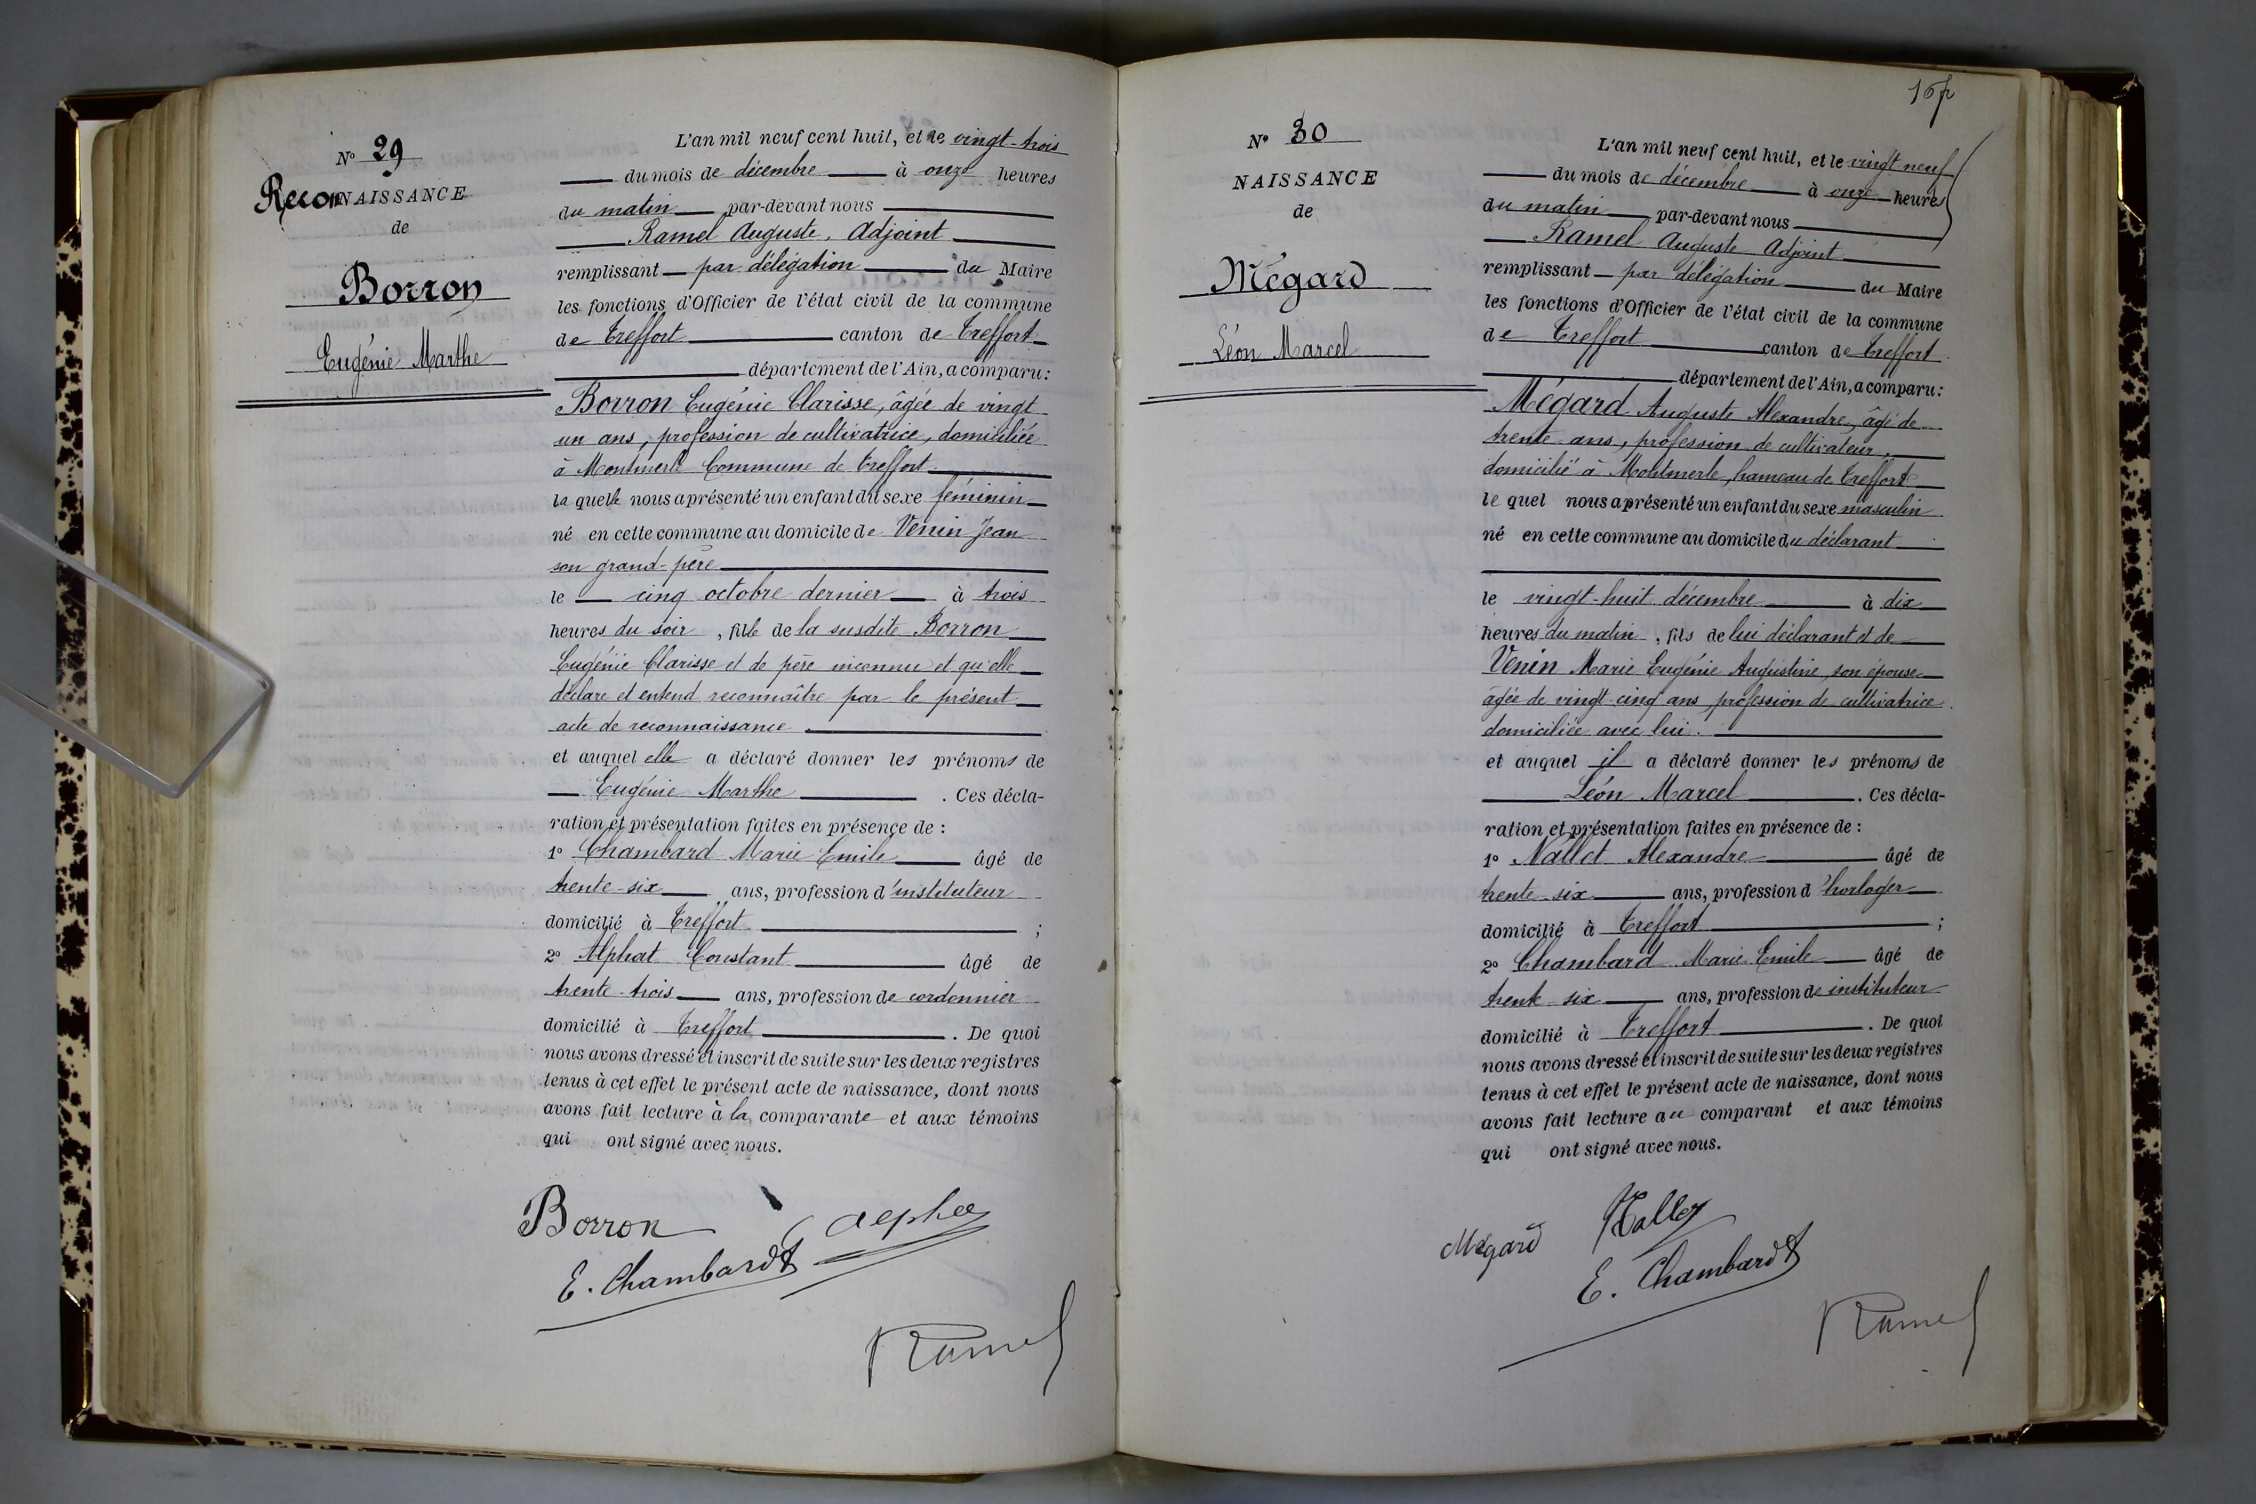 N° 29
Recon NAISSANCE
de
Borron
Eugénie Marthe
L'an mil neuf cent huit, et le vingt-trois
du mois de décembre à onze heures
du matin par-devant nous
Ramel Auguste, Adjoint
remplissant par délégation du Maire
les fonctions d'Officier de l'état civil de la commune
de Treffort canton de Treffort
département de l'Ain, a comparu:
Borron Eugénie Clarisse, âgée de vingt
un ans, profession de cultivatrice, domiciliée
à Montmerle Commune de Treffort
la quelle nous a présenté un enfant du sexe féminin
né en cette commune au domicile de Venin Jean
son grand-père
le cinq octobre dernier à trois
heures du soir, fille de la susdite Borron
Eugénie Clarisse et de père inconnu et qu'elle
déclare et entend reconnaître par le présent
acte de reconnaissance
et auquel elle a déclaré donner les prénoms de
Eugénie Marthe. Ces décla-
ration et présentation faites en présence de :
1° Chambard Marie Emile âgé de
trente-six ans, profession d'instituteur
domicilié à Treffort ;
2° Alphat Constant âgé de
trente-trois ans, profession de cordonnier
domicilié à Treffort. De quoi
nous avons dressé et inscrit de suite sur les deux registres
tenus à cet effet le présent acte de naissance, dont nous
avons fait lecture à la comparante et aux témoins
qui ont signé avec nous.
Borron
E. Chambardt
Ramel
167
N° 30
NAISSANCE
de
Mégard
Léon Marcel
L'an mil neuf cent huit, et le vingt neuf
du mois de décembre à onze heures
du matin par-devant nous
Ramel Auguste Adjoint
remplissant par délégation du Maire
les fonctions d'Officier de l'état civil de la commune
de Treffort canton de Treffort
département de l'Ain, a comparu:
Mégard Auguste Alexandre, âgé de
trente ans, profession de cultivateur,
domicilié à Montmerle, hameau de Treffort
le quel nous a présenté un enfant du sexe masculin
né en cette commune au domicile du déclarant
le vingt-huit décembre à dix
heures du matin, fils de lui déclarant et de
Venin Marie Eugénie Augustine, son épouse
âgée de vingt-cinq ans, profession de cultivatrice
domiciliée avec lui.
et auquel il a déclaré donner les prénoms de
Léon Marcel. Ces décla-
ration et présentation faites en présence de :
1° Nallet Alexandre âgé de
trente-six ans, profession d'horloger
domicilié à Treffort ;
2° Chambard Marie Emile âgé de
trente-six ans, profession de instituteur
domicilié à Treffort. De quoi
nous avons dressé et inscrit de suite sur les deux registres
tenus à cet effet le présent acte de naissance, dont nous
avons fait lecture au comparant et aux témoins
qui ont signé avec nous.
Mégard
Nallet
E. Chambardt
Ramel